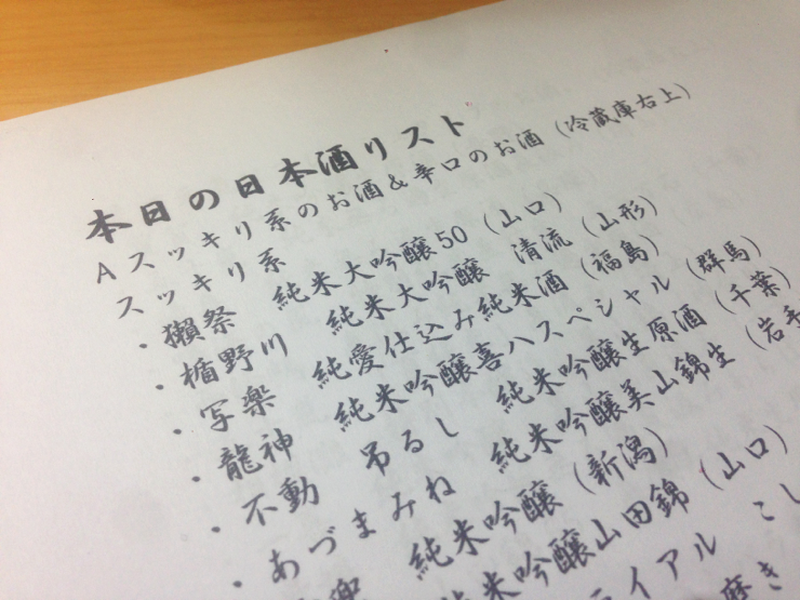 本日の日本酒リスト
Aスッキリ系のお酒&辛口のお酒(冷蔵庫右上)
スッキリ系
・獺祭 純米大吟醸50(山口)
・楯野川 純米大吟醸 清流(山形)
・写楽 純愛仕込み純米酒(福島)
・龍神 純米吟醸喜ハスペシャル(群馬)
・不動 吊るし 純米吟醸生原酒(千葉)
・あづまみね 純米吟醸美山錦生(岩手
純米吟醸(新潟)
米吟醸山田錦(山口)
イアル こし
磨き